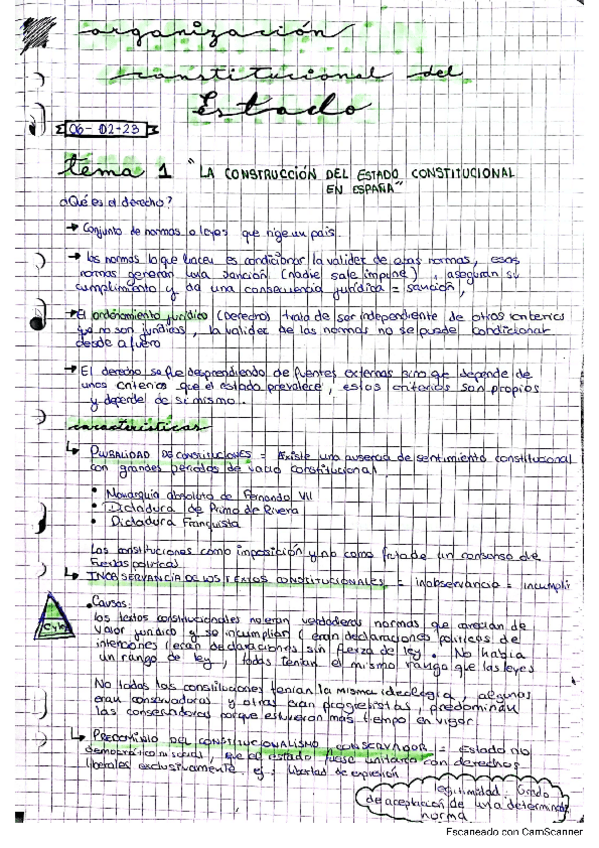 organización
constitucional del
Estado
06-02-23
tema 1 "LA CONSTRUCCIÓN DEL ESTADO CONSTITUCIONAL
EN ESPAÑA"
¿Qué es el derecho?
→ Conjunto de normas o leyes que rige un país.
→ las normas lo que hacen es condicionar la validez de otras normas, esas
normas generan una sanción (nadie sale impune), aseguran su
cumplimiento y da una consecuencia jurídica = sanción,
→ El ordenamiento jurídico (Derecho) trata de ser independiente de otros criterios
que no son jurídicos, la validez de las normas no se puede condicionar
desde afuera
→ El derecho se fue desprendiendo de fuentes externas sino que depende de
unos criterios que el estado prevalece, estos criterios son propios
y depende de si mismo.
características
↳ PLURALIDAD DE CONSTITUCIONES = Existe una ausencia de sentimiento constitucional
con grandes periodos de vacío constitucional
• Monarquía absoluta de Fernando VII
• Dictadura de Primo de Rivera
• Dictadura Franquista
Las constituciones como imposición y no como fruto de un consenso de
fuerzas políticas
↳ INOBSERVANCIA DE LOS TEXTOS CONSTITUCIONALES = inobservancia = incumpli
• Causas:
los textos constitucionales no eran verdaderas normas que carecían de
valor jurídico y se incumplían (eran declaraciones políticas de
intenciones (eran declaraciones sin fuerza de ley. No había
un rango de ley, todas tenían el mismo rango que las leyes
No todas las constituciones tenían la misma ideología, algunas
eran conservadoras y otras eran progresistas, predominan
las conservadoras porque estuvieron más tiempo en vigor
↳ PREDOMINIO DEL CONSTITUCIONALISMO CONSERVADOR = Estado no
democrático ni social, que el estado fuese unitario con derechos
liberales exclusivamente. ej: libertad de expresión
legitimidad: Grado
de aceptación de una determinada
norma
Escaneado con CamScanner